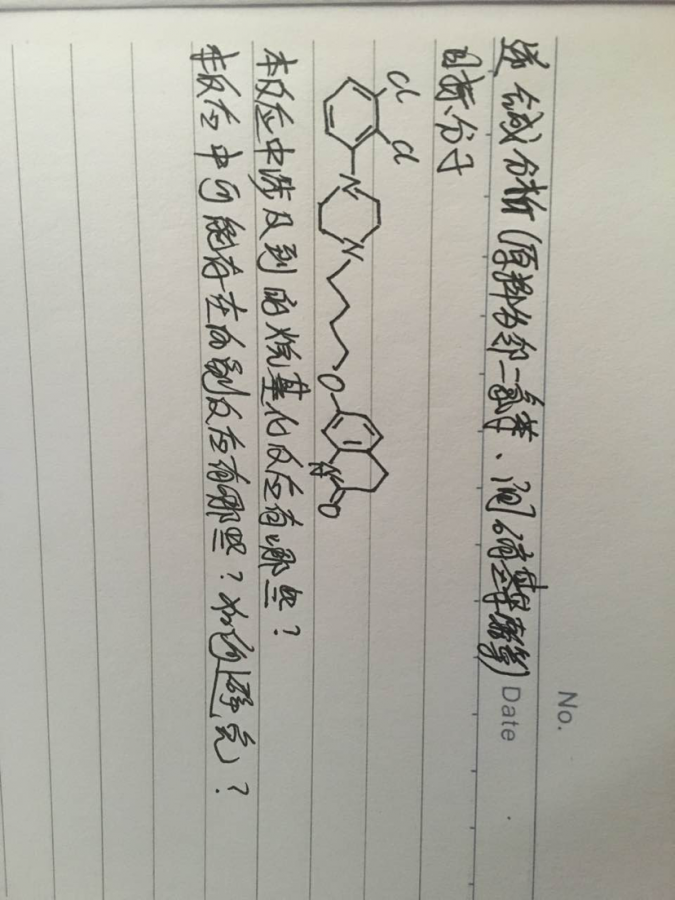 No.
Date
逆合成分析(原料为邻二氯苯、间硝基苯酚等)
目标分子
Cl
Cl
N
N
O
N
H
O
本反应中涉及到的烷基化反应有哪些?
反应中可能存在的副反应有哪些?如何避免?